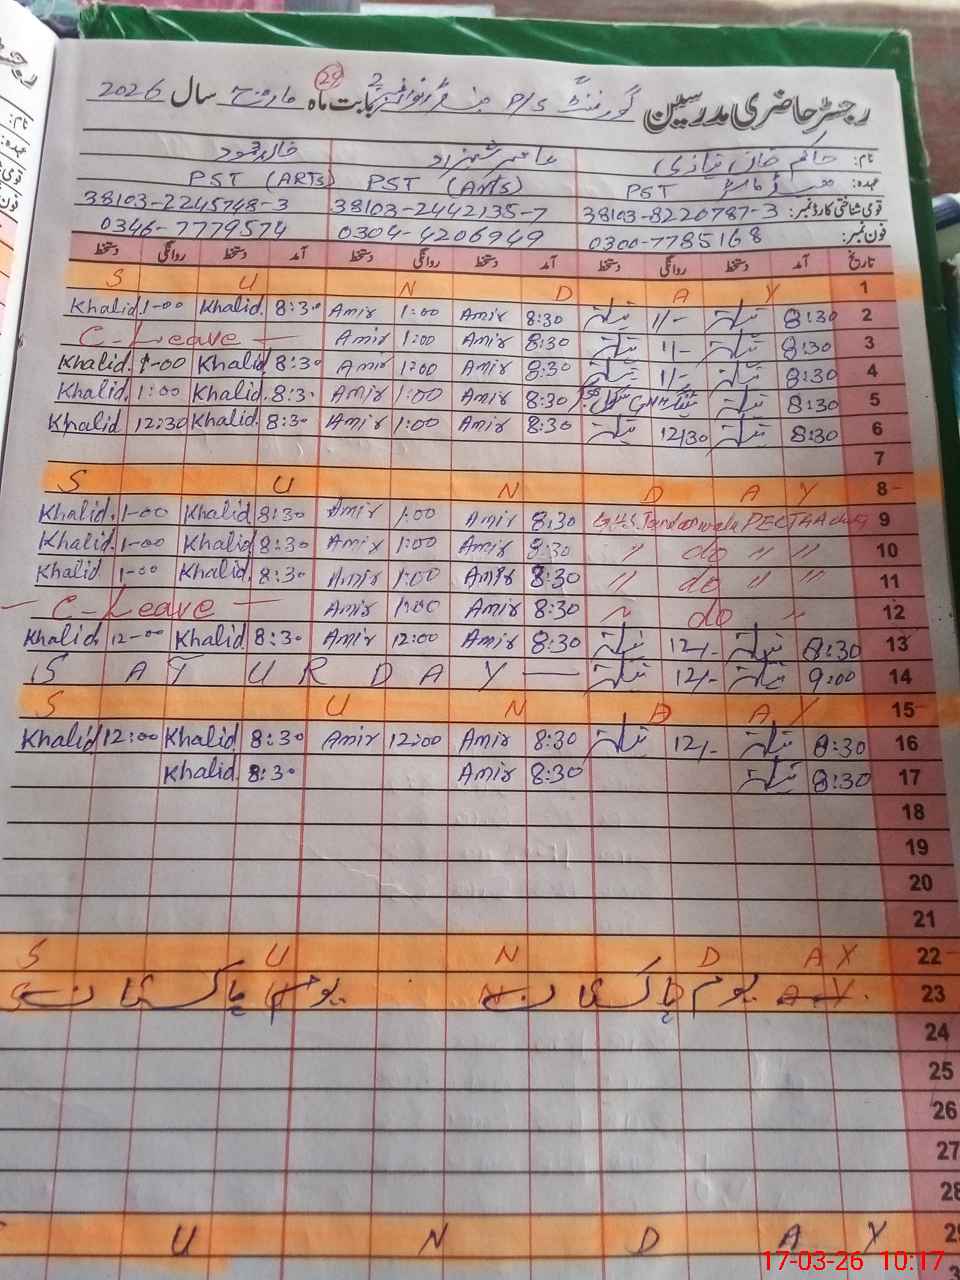 رجسٹر حاضری مدرسین گورنمنٹ P/S بابت ماہ مارچ سال 2026
29
نام: حاکم خان نیازی عامر شہزاد خالد محمود
عہدہ: ہیڈ ماسٹر PST PST (Arts) PST (ARTs)
قومی شناختی کارڈ نمبر: 38103-8220787-3 38103-2442135-7 38103-2245748-3
فون نمبر: 0300-7785168 0304-4206949 0346-7779574
تاریخ آمد دستخط روانگی دستخط آمد دستخط روانگی دستخط آمد دستخط روانگی دستخط
S U N D A Y 1
Khalid 1-00 Khalid 8:30 Amir 1:00 Amir 8:30 1/- 8:30 2
C-Leave Amir 1:00 Amir 8:30 1/- 8:30 3
Khalid. 1-00 Khalid 8:30 Amir 1:00 Amir 8:30 1/- 8:30 4
Khalid. 1:00 Khalid. 8:30 Amir 1:00 Amir 8:30 8:30 5
Khalid 12:30 Khalid. 8:30 Amir 1:00 Amir 8:30 12/30 8:30 6
7
S U N D A Y 8
Khalid. 1-00 Khalid 8:30 Amir 1:00 Amir 8:30 9
Khalid. 1-00 Khalid. 8:30 Amir 1:00 Amir 8:30 〃 do 〃 〃 10
Khalid. 1-00 Khalid. 8:30 Amir 1:00 Amir 8:30 〃 do 〃 〃 11
C-Leave Amir 1:00 Amir 8:30 〃 do 〃 12
Khalid. 12-00 Khalid 8:30 Amir 12:00 Amir 8:30 12/- 8:30 13
S A T U R D A Y 12/- 9:00 14
S U N D A Y 15
Khalid 12:00 Khalid 8:30 Amir 12:00 Amir 8:30 12/- 8:30 16
Khalid. 8:30 Amir 8:30 8:30 17
18
19
20
21
S U N D A Y 22
یوم پاکستان یوم پاکستان 23
24
25
26
27
28
U N D A Y 29
17-03-26 10:17